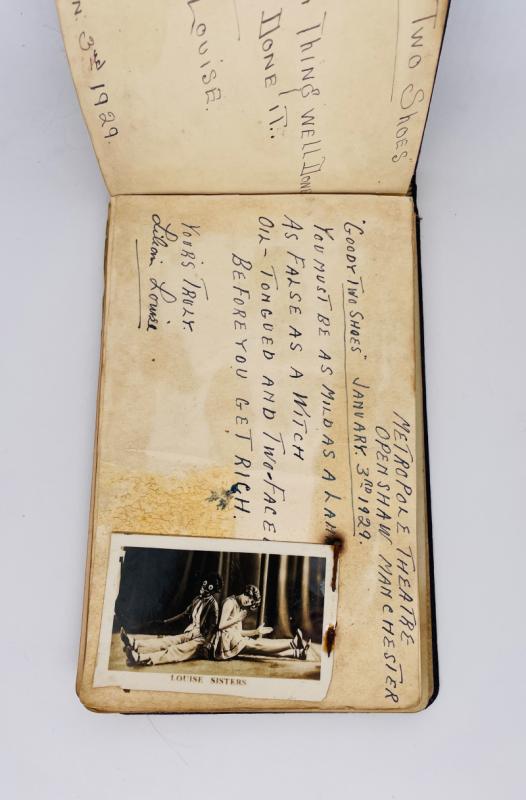 TWO SHOES"
THING WELL DONE
DONE IT..
LOUISE.
N. 3RD 1929.
METROPOLE THEATRE
OPENSHAW MANCHESTER
"GOODY TWO SHOES" JANUARY. 3RD 1929.
YOU MUST BE AS MILD AS A LAM
AS FALSE AS A WITCH
OIL-TONGUED AND TWO-FACE
BEFORE YOU GET RICH.
YOURS TRULY.
Lilian Louise.
LOUISE SISTERS